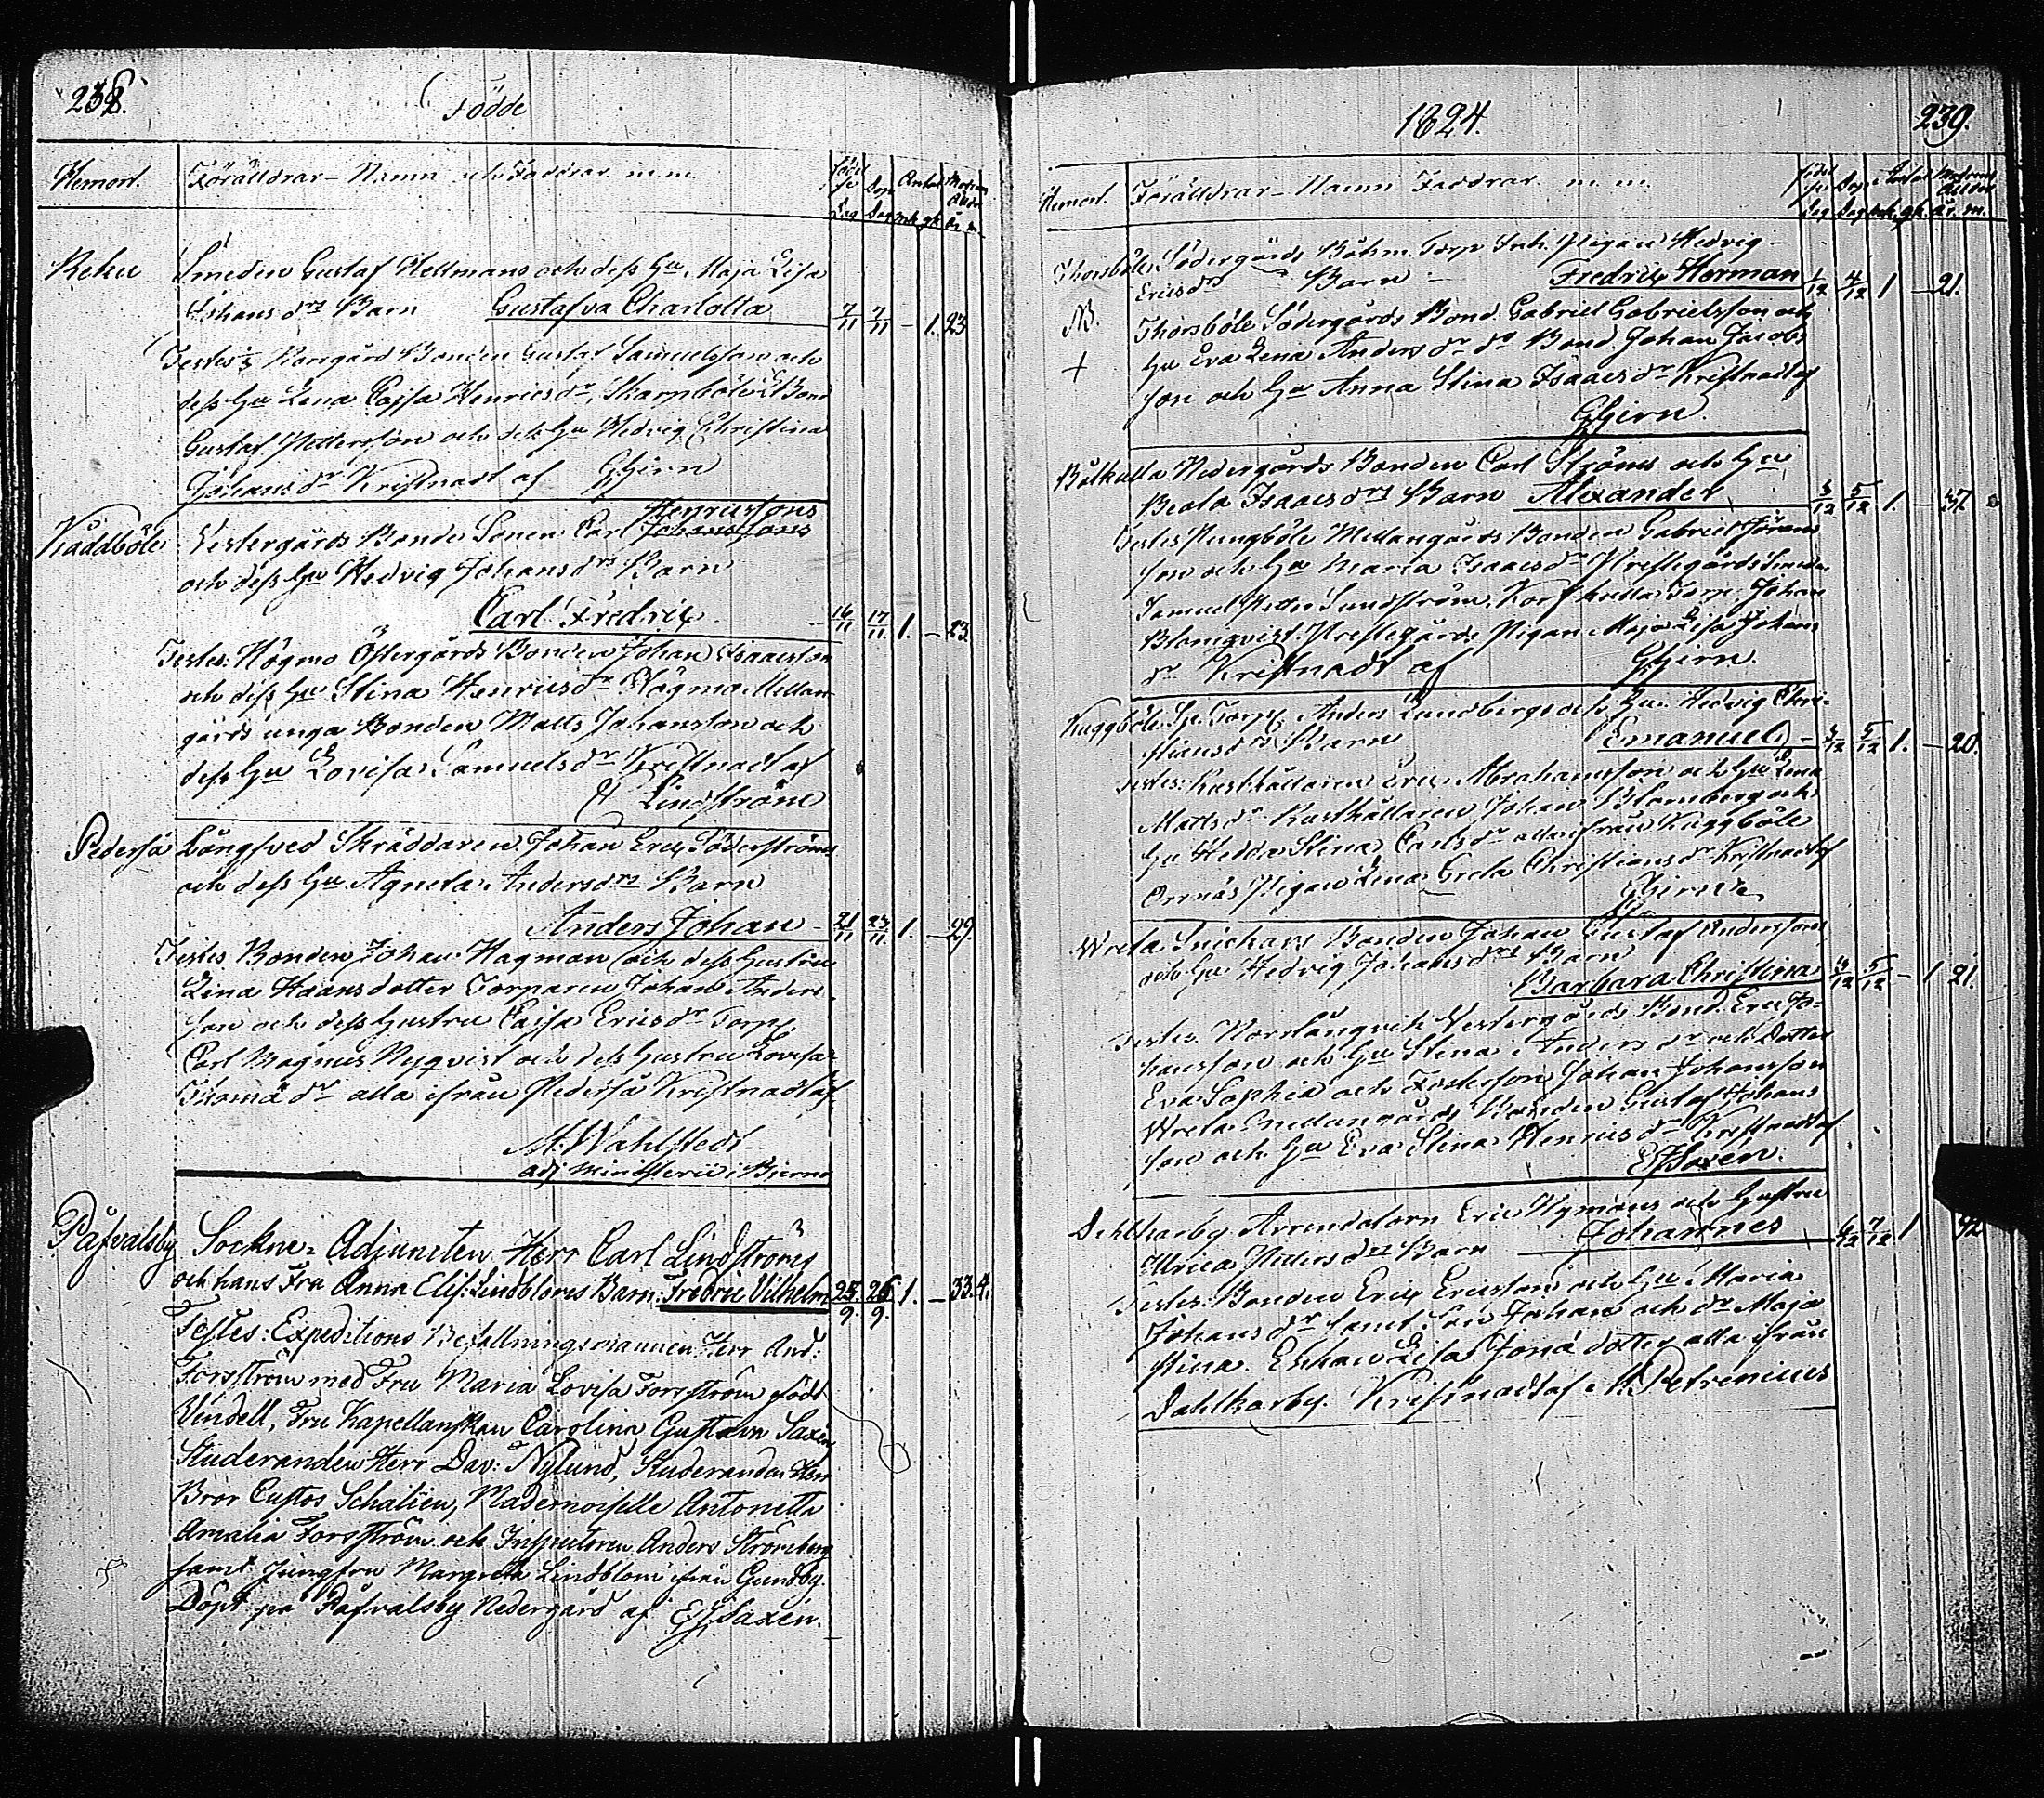 238.
Födde
Hemort. Föräldrar - Namn och Faddrar m.m.
Född Döpt Ankel Modrens Ålder
Dag Dag mk. qk. år. m.
Reku Smeden Gustaf Hellmans och dess Hu Maja Lisa
Johans drs Barn Gustafva Charlotta 7/11 7/11 - 1. 23
Testes: Norrgård Bonden Gustaf Samuelsson och
dess Hu Lena Cajsa Henricsdr, Skarpböle Bond
Gustaf Pettersson och dess Hu Hedvig Christina
Johansdr Kristnadt af Hjern
Henricssons
Kåddböle Vestergårds Bonde Sonen Carl Johanssons
och dess Hu Hedvig Johansdrs Barn
Carl Fredric 16/11 17/11. 1. - 23.
Testes: Högmo Östergårds Bonden Johan Isaacsson
och dess Hu Stina Henricsdr Högmo Mellan
gårds unga Bonden Matts Johansson och
dess Hu Lovisa Samuelsdr Kristnadt af
C Lindström
Pederså Långsved Skräddaren Johan Eric Söderströms
och dess Hu Agneta Andersdrs Barn
Anders Johan - 21/11 23/11. 1. - 29.
Testes Bonden Johan Hagman och dess Hustru
Lina Hansdotter Torparen Johan Anders
son och dess Hustru Caisa Ericsdr Torp.
Carl Magnus Nyqvist och dess Hustru Lovisa
Thomä dr alla ifrån Pederså Kristnadt af
M. Wahlstedt
adj. Ministerii i Bjerno
Påfvalsby Sockne-Adjuncten Herr Carl Lindströms
och hans Fru Anna Elis: Lindbloms Barn: Fredric Vilhelm 25/9. 26/9. 1. - 33.4.
Testes: Expeditions Befallningsmannen Herr And:
Forsström med Fru Maria Lovisa Forsström född
Vindell, Fru Kapellanskan Carolina Gustava Saxén
Studeranden Herr Dav: Nylund, Studeranden Herr
Bror Custos Schalien, Mademoiselle Antonetta
Amalia Forsström och Inspectoren Anders Strömberg
samt Jungfru Margreta Lindblom ifrån Gundby.
Döpt på Påfvalsby Nedergård af EJSaxén.
1824. 239.
Hemort. Föräldrar - Namn Faddrar m. m.
Dag Dag mk. qk. år. m.
Thorsböle Södergårds Båtsm. Torp Inh. Pigan Hedvig
Ericsdrs Barn - Fredric Herman 1/12 4/12 1 - 21.
NB. Thorsböle Södergårds Bond. Gabriel Gabrielsson och
+ Hu Eva Lena Anders dr do Bond. Johan Jacobs
son och Hu Anna Stina Isaacsdr Kristnadt af
Hjern.
Bölkulla Nedergårds Bonden Carl Ströms och Hu
Beata Isaacsdrs Barn Alexander 3/12 5/12 1. - 37
Testes Pungböle Mellangårds Bonden Gabriel Jörans
son och Hu Maria Isaacsdr Prestegårds Smeden
Samuel Petter Sundström, Korskulla Torp. Johan
Blomqvist. Prestegårds Pigan Maja Lisa Johans
dr Kristnadt af Hjern.
Kuggböle Sp. Torp. Anders Lundbergs och Hu Hedvig Chri-
stiansdrs Barn Emanuel - 3/12 5/12 1. - 20.
Testes: Rusthållaren Eric Abrahamsson och Hu Lena
Mattsdr Rusthållaren Johan Blomberg och
Hu Hedda Stina Carlsdr alla ifrån Kuggböle
Ornäs Pigan Lena Greta Christiansdr Kristnadt af
Hjern.
Wreta Snickars Bonden Johan Gustaf Anderssons
och Hu Hedvig Johansdrs Barn
Barbara Christina 5/12 - 1 21.
Testes: Norrlångvik Vestergårds Bond. Eric Jo-
hansson och Hu Stina Andersdr och Dotter
Eva Sophia och Fostersson Johan Johansson
Wreta Bonden Gustaf Johans
son och Hu Eva Stina Henricsdr Kristnadt af
EJSaxén.
Dahlkarby Arrendatorn Eric Nymans och Hustru
Ulrica Pettersdrs Barn Johannes 6/12 7/12 1 42
Testes: Bonden Eric Ericsson och Hu Maria
Johansdr samt Son Johan och dr Maja
Stina. Enkan Lisa Jonä dotter alla ifrån
Dahlkarby. Kristnadt af A. Petrenius